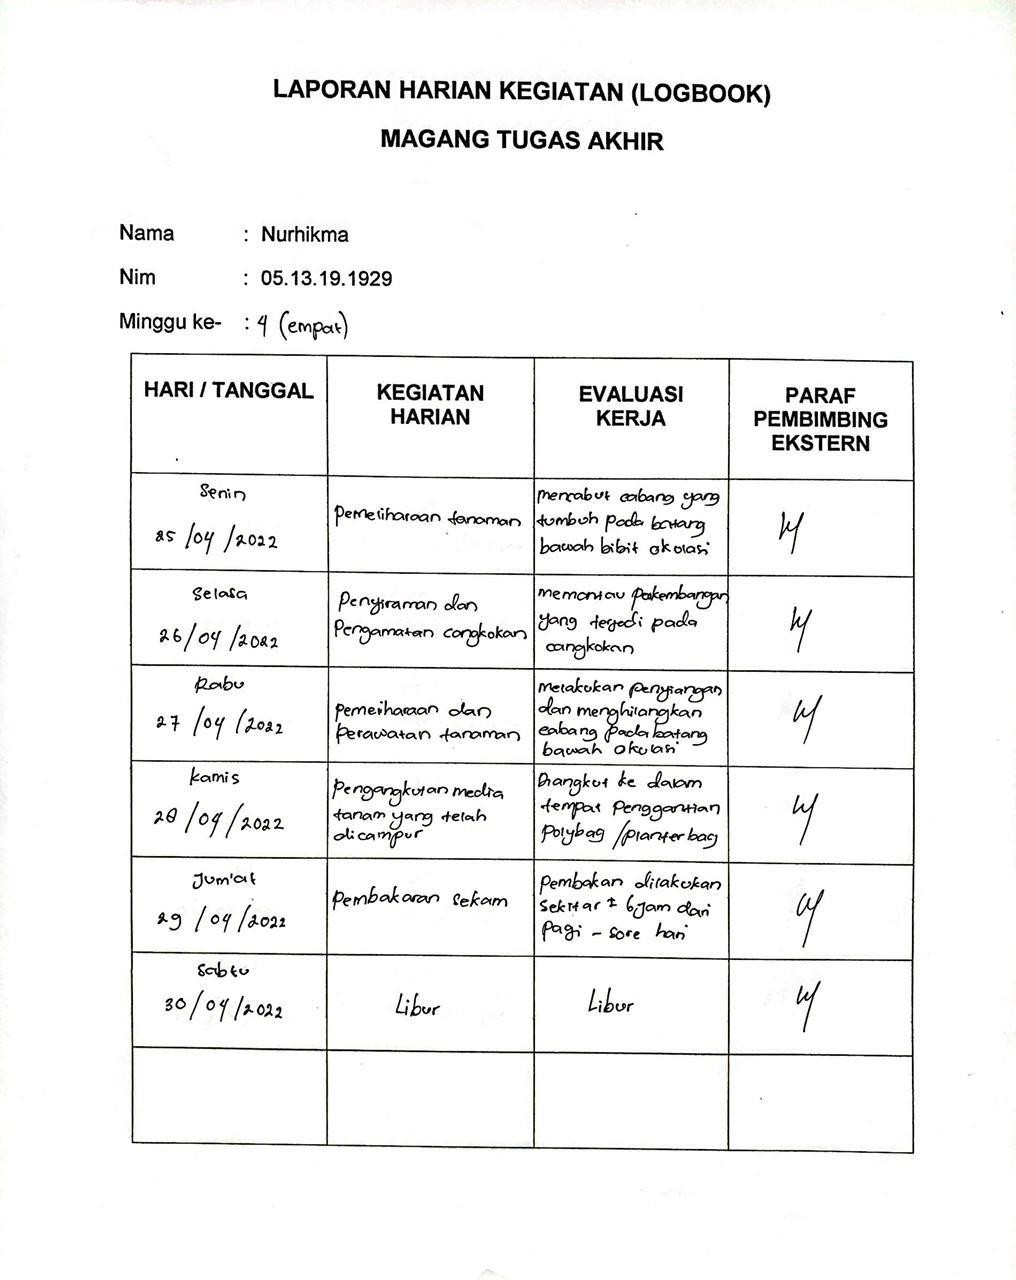 LAPORAN HARIAN KEGIATAN (LOGBOOK)
MAGANG TUGAS AKHIR
Nama : Nurhikma
Nim : 05.13.19.1929
Minggu ke- : 4 (empat)
HARI / TANGGAL
KEGIATAN
HARIAN
EVALUASI
KERJA
PARAF
PEMBIMBING
EKSTERN
Senin
25/04/2022
Pemeliharaan tanaman
mencabut cabang yang
tumbuh pada batang
bawah bibit okulasi
Selasa
26/04/2022
Penyiraman dan
Pengamatan cangkokan
memantau perkembangan
yang terjadi pada
cangkokan
Rabu
27/04/2022
pemeiharaan dan
perawatan tanaman
melakukan penyiangan
dan menghilangkan
cabang pada batang
bawah okulasi
Kamis
28/04/2022
Pengangkutan media
tanam yang telah
dicampur
Diangkut ke dalam
tempat Penggantian
Polybag /planter bag
Jum'at
29/04/2022
Pembakaran sekam
Pembakan dilakukan
sekitar ± 6 jam dari
Pagi - sore hari
Sabtu
30/04/2022
Libur
Libur